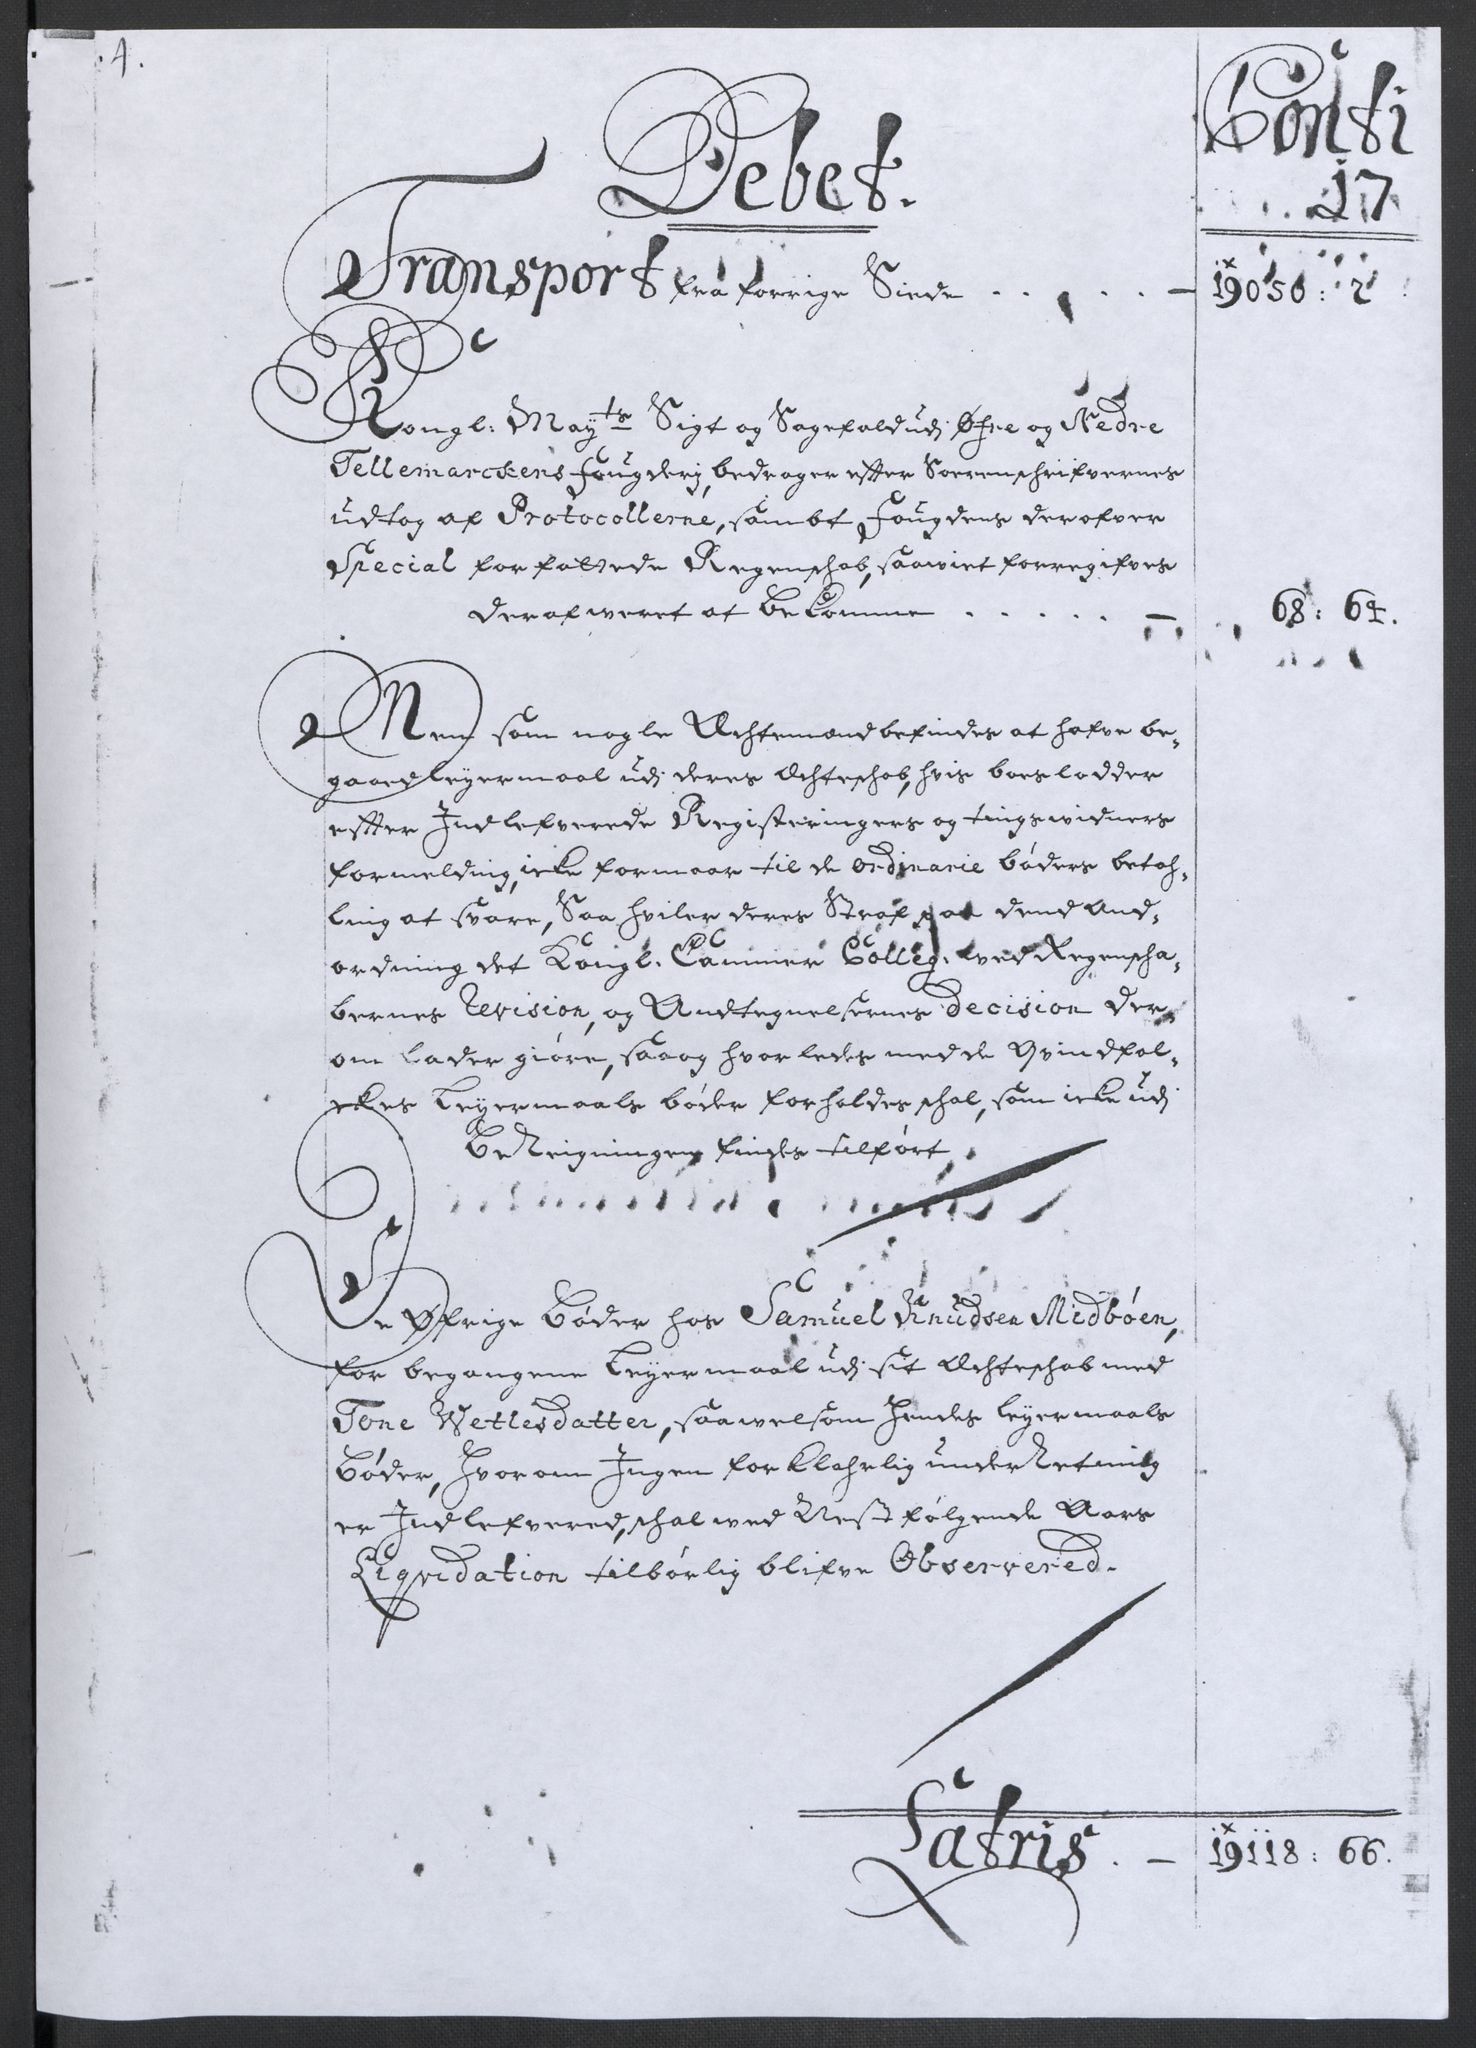 4.
Debet.
Conti
17
Transport fra forrige Siede . . . . . — 19050: 2
Kongl: Mayts Sigt og Sagefald udj Øfre og Nedre
Tellemarckens fougderj, bedrager efter Sorenschrifvernes
udtog af Protocollerne, sambt fougdens derofver
Special forfattede Regenschab, saawiet forregifves
deraf weret at bekomme . . . . . — 68: 64.
Men som nogle Ægtemænd befindes at hafve be-
gaaed leyermaal udj deres Ægteschab, hvis boeslodder
efter Indlefverede Registeringers og tingswidners
formelding, icke formaar til de ordinarie bøders betah-
ling at svare, Saa hviler deres Straf paa dend And-
ordning det Kongl. Cammer Colleg. wed Regenscha-
bernes Revision, og Andtegnelsernes decision der-
om lader giøre, saa og hvorledes med de Qvindfol-
ckes Leyermaals bøder forholdes schal, som icke udj
beRegningen findes tilført.
De Øfrige Bøder hos Samuel Knudsen Midbøen,
for begangene Leyermaal udj sit Ægteschab med
Tone Wetlesdatter, saawelsom hendes leyermaals
Bøder, hvorom Ingen forklahrlig underRetning
er Indlefvered, schal wed Nestfølgende Aars
Liqvidation tilbørlig blifve Observered.
Latris. — 19118: 66.